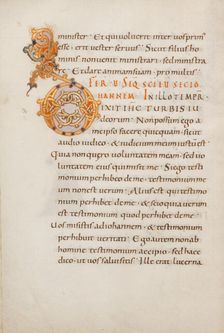 ministeR & Quicuoluerit inteR uosprim'
esse . erit uesteR seruus . Sicut filius ho
minis nonuenit ministrari . sedministra
re . Etdare animamsuam . pro multis
SCI EU SCDO
IOHANNEM . IN ILLO TEMPR
DIXIT IHC TURBIS IU
daeorum . Nonpossum ego a
meipso facere quicquam . sicut
audio iudico . & iudicium meum iustum est
Quia nonquero uoluntatem meam . sed uo
luntatem eius quimisit me . Siego testi
monium perhibeo deme . testimonium me
um nonest uerum . Alius est quitestimo
nium perhib& deme . & scio quia uerum
est testimonium quod perhib& deme .
Uos misistis adiohannem . & testimonium
perhibuit ueritati . Ego autem nonab
homine testimonium accipio . sed haec
dico . ut uos saluisitis . Ille erat lucerna